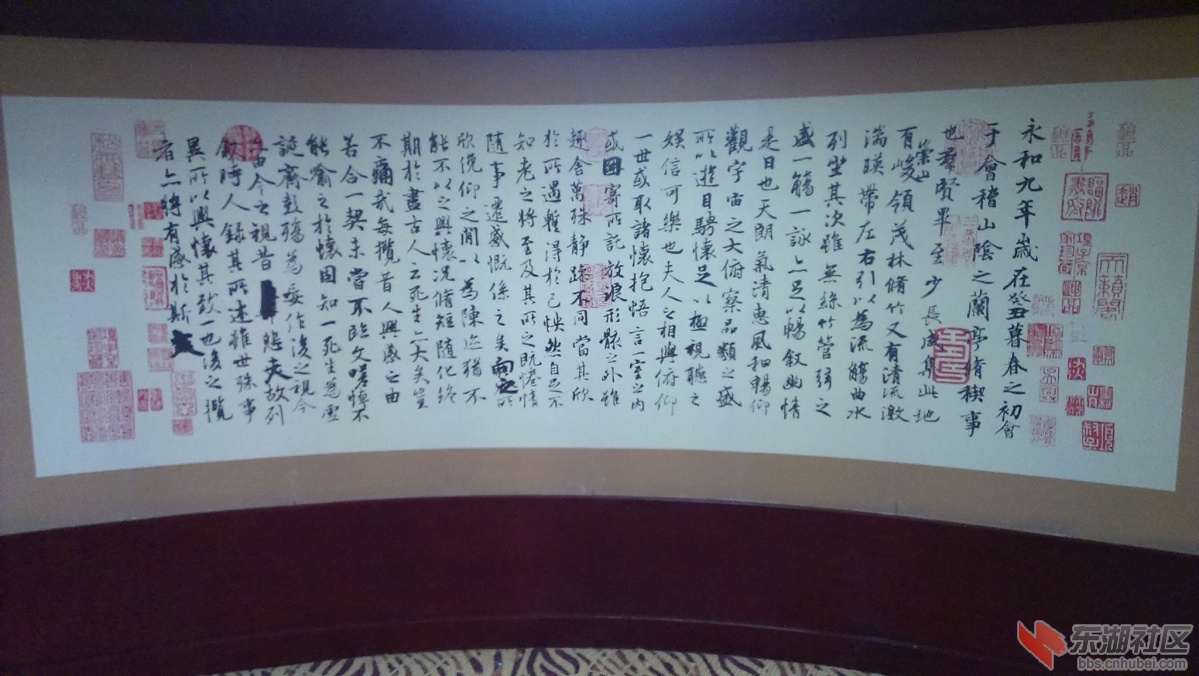 永和九年歲在癸丑暮春之初會
于會稽山陰之蘭亭脩稧事
也羣賢畢至少長咸集此地
有崇山峻領茂林脩竹又有清流激
湍暎帶左右引以為流觴曲水
列坐其次雖無絲竹管弦之
盛一觴一詠亦足以暢叙幽情
是日也天朗氣清惠風和暢仰
觀宇宙之大俯察品類之盛
所以遊目騁懷足以極視聽之
娛信可樂也夫人之相與俯仰
一世或取諸懷抱悟言一室之內
或因寄所託放浪形骸之外雖
趣舍萬殊靜躁不同當其欣
於所遇暫得於己怏然自足不
知老之將至及其所之既惓情
隨事遷感慨係之矣向之所
欣俛仰之閒以為陳迹猶不
能不以之興懷況脩短隨化終
期於盡古人云死生亦大矣豈
不痛哉每攬昔人興感之由
若合一契未嘗不臨文嗟悼不
能喻之於懷固知一死生為虛
誕齊彭殤為妄作後之視今
由今之視昔悲夫故列
敘時人錄其所述雖世殊事
異所以興懷其致一也後之攬
者亦將有感於斯文
东湖社区
bbs.cnhubei.com